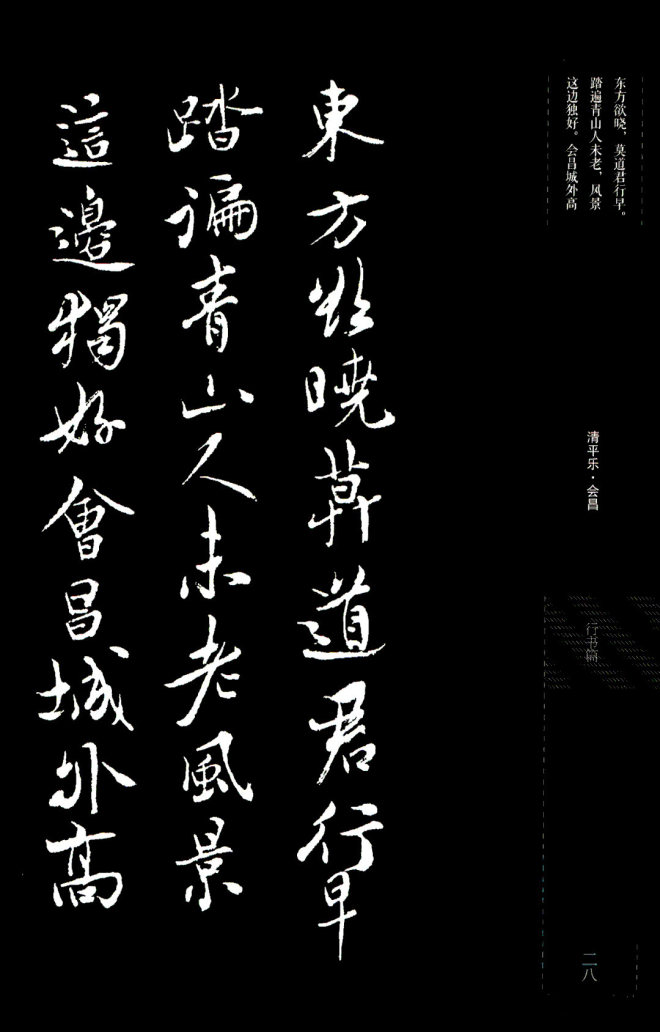 东方欲晓，莫道君行早。
踏遍青山人未老，风景
这边独好。会昌城外高
清平乐·会昌
行书篇
二八
東方欲曉莫道君行早
踏遍青山人未老風景
這邊獨好會昌城外高